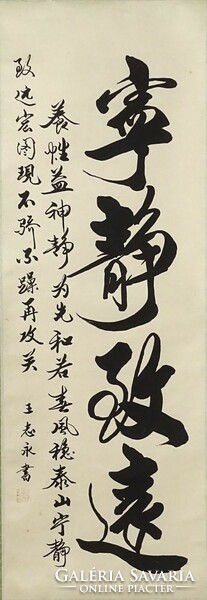 寧靜致遠
養性益神静为先和若春风穏泰山宁静
致远宏图現不骄不躁再攻关
王志永書
GALÉRIA SAVARIA
ONLINE PIACTÉR